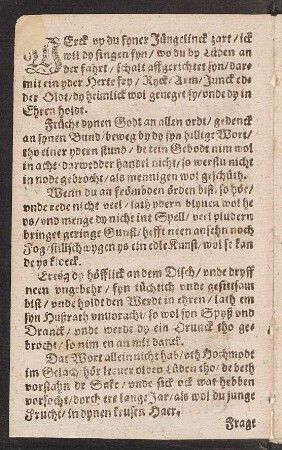 MErck vp du fyner Jüngelinck zart / ick
wil dy singen syn / wo du by Lüden an
der fahrt / schalt affgerichtet syn / dar-
mit ein yder Herte fry / Ryck / Arm / Junck edde
der Oldt / dy heimlick wol geneget sy / vnde dy in
Ehren holdt.
Früchte dynen Godt an allen ordt / gedenck
an synen Bund / beweg dy dy syn hillige Wort /
tho einer ydern stund / de tein Gebodt nim wol
in acht / darwedder handel nicht / so werstu nicht
in nodt gebrocht / als mennigen wol geschüth.
Wenn du an frömbden örden bist / so hör /
vnde rede nicht veel / lath ydern blyuen wol he
ys / vnd menge dy nicht int Spell / veel pludern
bringet geringe Gunst / hefft neen ansehn noch
Fog / stillschwygen ys ein edle Kunst / wol se kan
de ys kloeck.
Ertög dy höfflick an dem Disch / vnde dryff
neen vngebehr / syn tüchtich vnde gesittsam
bist / vnde holdt den Werdt in ehren / lath em
syn Hußrath vnuoracht / so wol syn Spyß vnd
Dranck / vnde werdt dy ein Drunck tho ge-
brocht / so nim en an mit danck.
Dat Wort allein nicht hab / oth Hochmodt
im Gelach / hör leeuer olden Lüden tho / de beth
vorstahn de Sake / vnde sick ock wat hebben
vorsocht / dorch ere lange Jar / als wol du junge
Frucht / in dynen krusen Haer.
Fragt